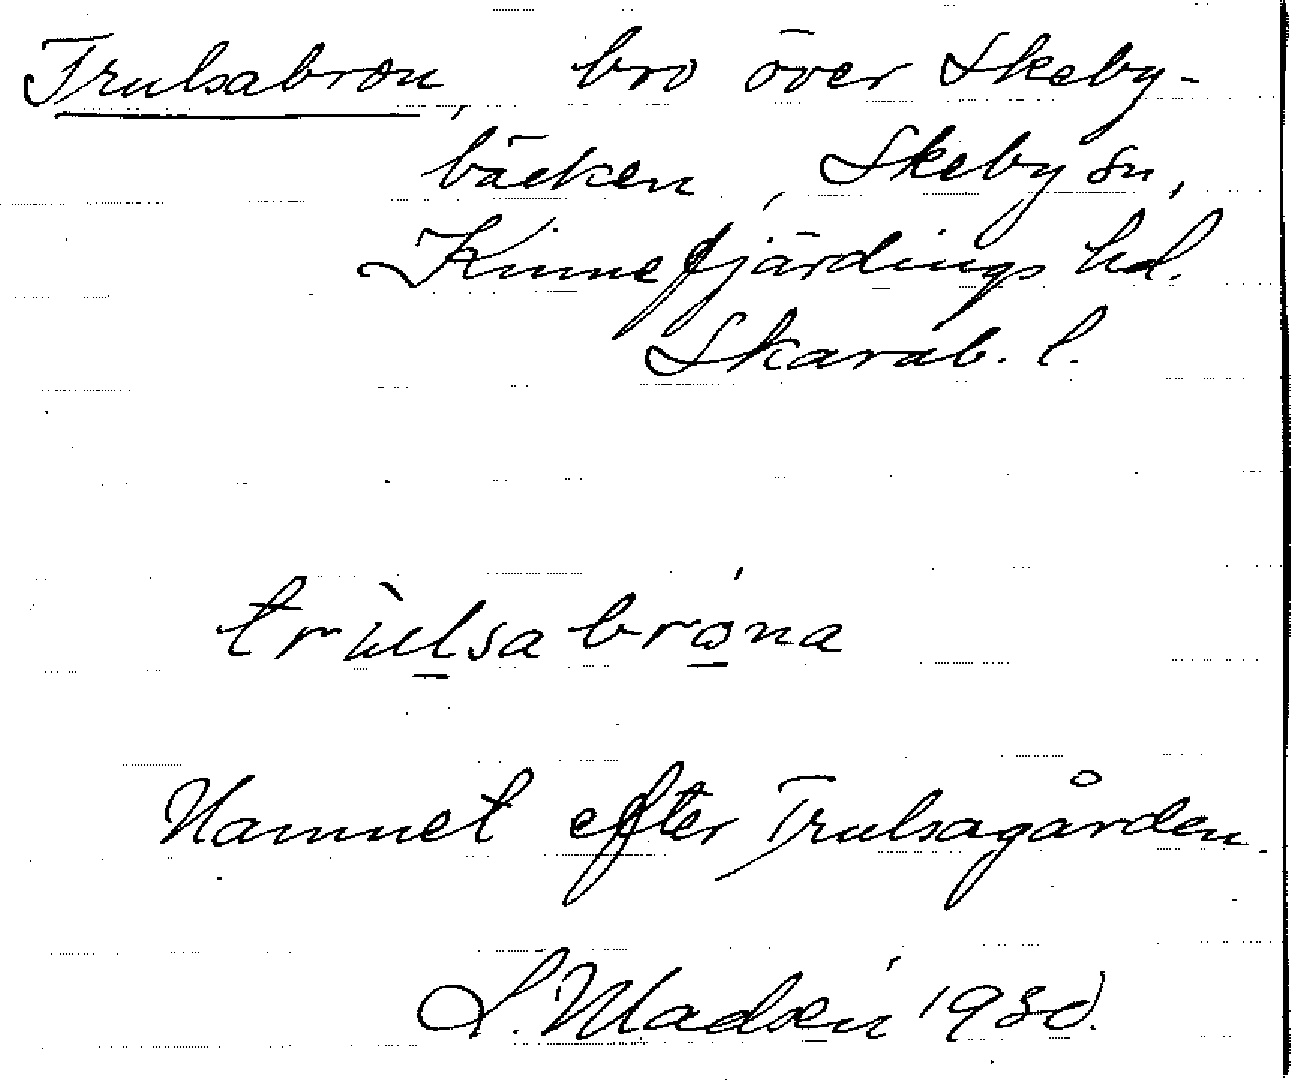 Trulsabron, bro över Skeby-
bäcken, Skeby sn,
Kinnefjärdings hd.
Skarab. l.
trùlsabrona
Namnet efter Trulsagården.
1930.